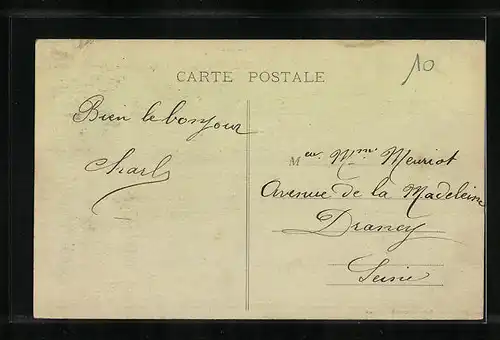 CARTE POSTALE
10
Bien le bonjour
Charl
M eur Mme Meuriot
Avenue de la Madeleine
Drancy
Seine